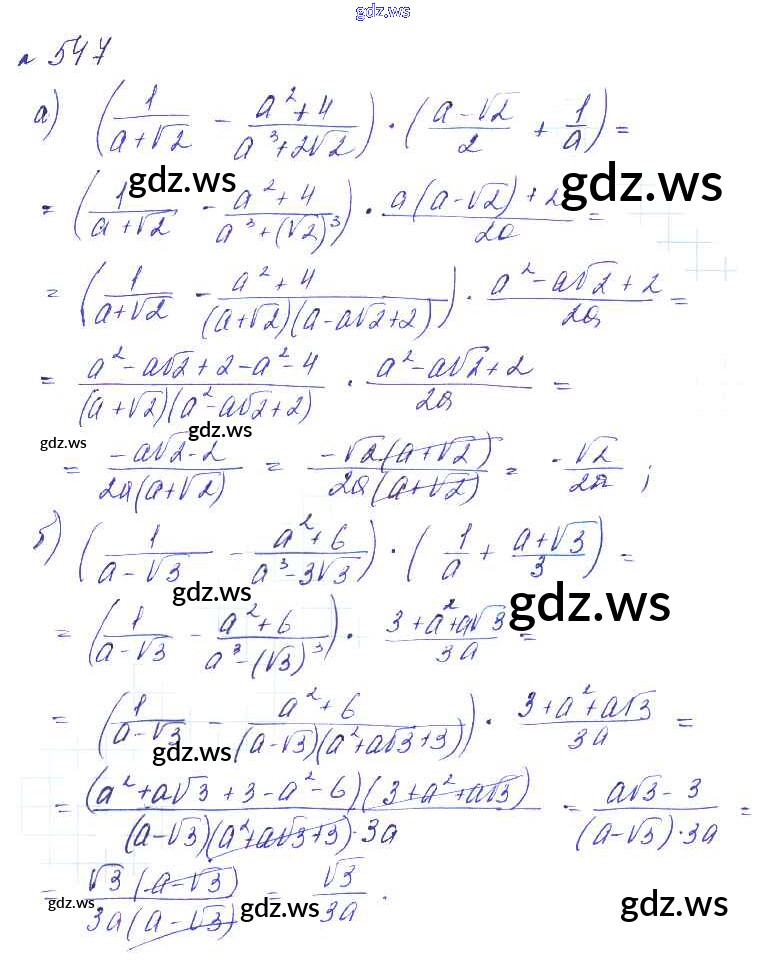 gdz.ws
№ 547
а) (1/(a+√2) - (a²+4)/(a³+2√2)) · ((a-√2)/2 + 1/a) =
= (1/(a+√2) - (a²+4)/(a³+(√2)³)) · (a(a-√2)+2)/2a =
gdz.ws gdz.ws
= (1/(a+√2) - (a²+4)/((a+√2)(a-a√2+2))) · (a²-a√2+2)/2a =
= (a²-a√2+2-a²-4)/((a+√2)(a²-a√2+2)) · (a²-a√2+2)/2a =
gdz.ws gdz.ws
= (-a√2-2)/(2a(a+√2)) = (-√2(a+√2))/(2a(a+√2)) = -√2/2a ;
б) (1/(a-√3) - (a²+6)/(a³-3√3)) · (1/a + (a+√3)/3) =
gdz.ws gdz.ws
= (1/(a-√3) - (a²+6)/(a³-(√3)³)) · (3+a²+a√3)/3a =
= (1/(a-√3) - (a²+6)/((a-√3)(a²+a√3+3))) · (3+a²+a√3)/3a =
gdz.ws gdz.ws
= ((a²+a√3+3-a²-6)(3+a²+a√3))/((a-√3)(a²+a√3+3)·3a) = (a√3-3)/((a-√3)·3a) =
= (√3(a-√3))/(3a(a-√3)) = √3/3a .
gdz.ws gdz.ws gdz.ws